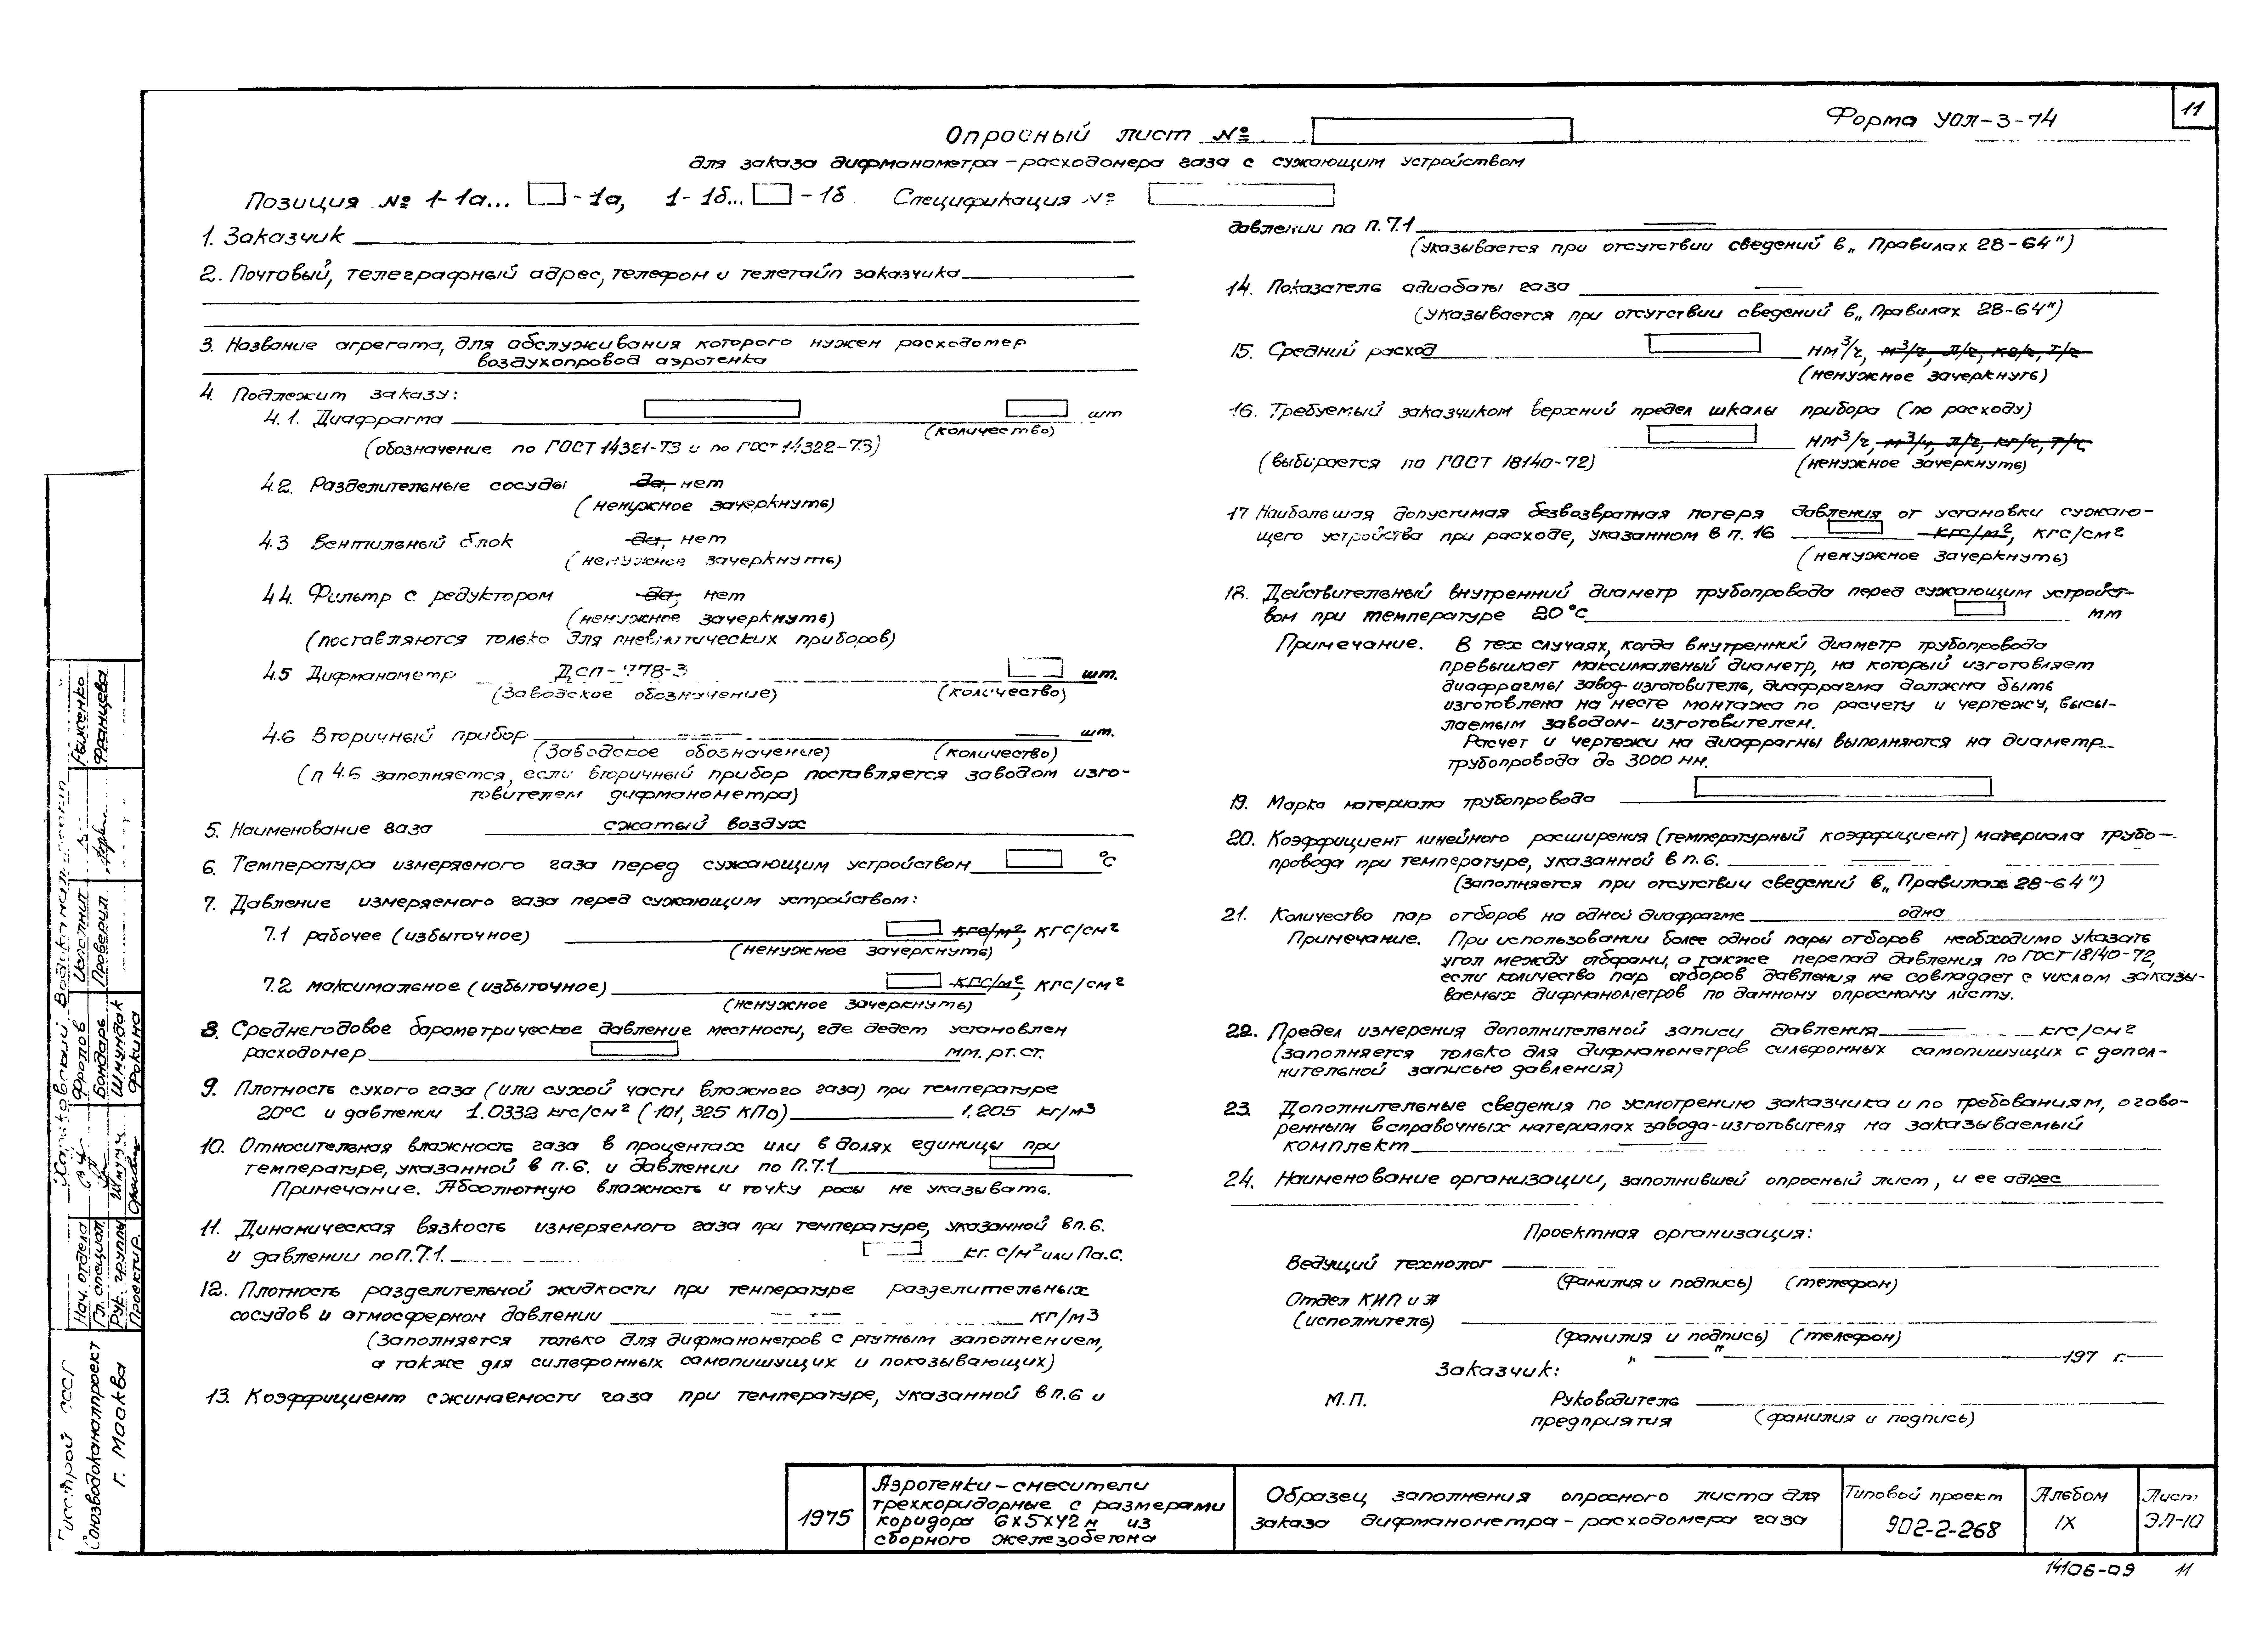 11
Форма УОЛ-3-74
Опросный лист №
для заказа дифманометра-расходомера газа с сужающим устройством
Позиция № 1-1а... -1а, 1-1б... -1б. Спецификация №
1. Заказчик
2. Почтовый, телеграфный адрес, телефон и телетайп заказчика
3. Название агрегата, для обслуживания которого нужен расходомер
воздухопровод аэротенка
4. Подлежит заказу:
4.1. Диафрагма шт
(количество)
(обозначение по ГОСТ 14321-73 и по ГОСТ 14322-73)
4.2. Разделительные сосуды да, нет
(ненужное зачеркнуть)
4.3 Вентильный блок да, нет
(ненужное зачеркнуть)
4.4. Фильтр с редуктором да, нет
(ненужное зачеркнуть)
(поставляются только для пневматических приборов)
4.5 Дифманометр ДСП-778-3 шт.
(Заводское обозначение) (количество)
4.6 Вторичный прибор — шт.
(Заводское обозначение) (количество)
(п 4.6 заполняется, если вторичный прибор поставляется заводом изго-
товителем дифманометра)
5. Наименование газа сжатый воздух
6. Температура измеряемого газа перед сужающим устройством °С
7. Давление измеряемого газа перед сужающим устройством:
7.1 рабочее (избыточное) кгс/м², кгс/см²
(ненужное зачеркнуть)
7.2 максимальное (избыточное) кгс/м², кгс/см²
(ненужное зачеркнуть)
8. Среднегодовое барометрическое давление местности, где дедет установлен
расходомер мм. рт. ст.
9. Плотность сухого газа (или сухой части влажного газа) при температуре
20°С и давлении 1.0332 кгс/см² (101,325 КПа) 1,205 кг/м3
10. Относительная влажность газа в процентах или в долях единицы при
температуре, указанной в п.6. и давлении по П.7.1
Примечание. Абсолютную влажность и точку росы не указывать.
11. Динамическая вязкость измеряемого газа при температуре, указанной в п.6.
и давлении по П.7.1. кг. с/м² или Па.с.
12. Плотность разделительной жидкости при температуре разделительных
сосудов и атмосферном давлении кг/м3
(Заполняется только для дифманометров с ртутным заполнением,
а также для сильфонных самопишущих и показывающих)
13. Коэффициент сжимаемости газа при температуре, указанной в п.6 и
давлении по П.7.1 —
(указывается при отсутствии сведений в „Правилах 28-64")
14. Показатель адиабаты газа —
(указывается при отсутствии сведений в „Правилах 28-64")
15. Средний расход нм3/ч, м3/ч, л/ч, кг/ч, т/ч
(ненужное зачеркнуть)
16. Требуемый заказчиком верхний предел шкалы прибора (по расходу)
нм3/ч, м3/ч, л/ч, кг/ч, т/ч
(выбирается по ГОСТ 18140-72) (ненужное зачеркнуть)
17 Наибольшая допустимая безвозвратная потеря давления от установки сужаю-
щего устройства при расходе, указанном в п. 16 кгс/м², кгс/см2
(ненужное зачеркнуть)
18. Действительный внутренний диаметр трубопровода перед сужающим устройст-
вом при температуре 20°С мм
Примечание. В тех случаях, когда внутренний диаметр трубопровода
превышает максимальный диаметр, на который изготовляет
диафрагмы завод-изготовитель, диафрагма должна быть
изготовлена на месте монтажа по расчету и чертежу, высы-
лаемым заводом-изготовителем.
Расчет и чертежи на диафрагмы выполняются на диаметр
трубопровода до 3000 мм.
19. Марка материала трубопровода
20. Коэффициент линейного расширения (температурный коэффициент) материала трубо-
провода при температуре, указанной в п.6. —
(заполняется при отсутствии сведений в „Правилах 28-64")
21. Количество пар отборов на одной диафрагме одна
Примечание. При использовании более одной пары отборов необходимо указать
угол между отборами, а также перепад давления по ГОСТ 18140-72,
если количество пар отборов давления не совпадает с числом заказы-
ваемых дифманометров по данному опросному листу.
22. Предел измерения дополнительной записи давления — кгс/см²
(заполняется только для дифманометров сильфонных самопишущих с допол-
нительной записью давления)
23. Дополнительные сведения по усмотрению заказчика и по требованиям, огово-
ренным в справочных материалах завода-изготовителя на заказываемый
комплект —
24. Наименование организации, заполнившей опросный лист, и ее адрес
Проектная организация:
Ведущий технолог
(фамилия и подпись) (телефон)
Отдел КИП и А
(исполнитель)
(фамилия и подпись) (телефон)
„ " 197 г.
Заказчик:
М.П. Руководитель
предприятия (фамилия и подпись)
1975
Аэротенки-смесители
трехкоридорные с размерами
коридора 6х5х42м из
сборного железобетона
Образец заполнения опросного листа для
заказа дифманометра-расходомера газа
Типовой проект
902-2-268
Альбом
IX
Лист
ЭЛ-10
14106-09 11
Госстрой СССР
Союзводоканалпроект
г. Москва
Харьковский Водоканалпроект
Нач. отдела Фролов
Гл. специал. Бондарь
Рук. группы Шмундак
Проектир. Фокина
Исполнит Рыженко
Проверил Францева